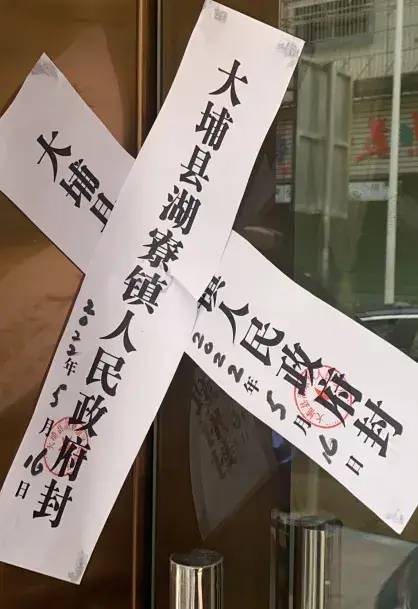 大埔县湖寮镇人民政府封
2022年5月16日
大埔县
镇人民政府封
2022年5月16日